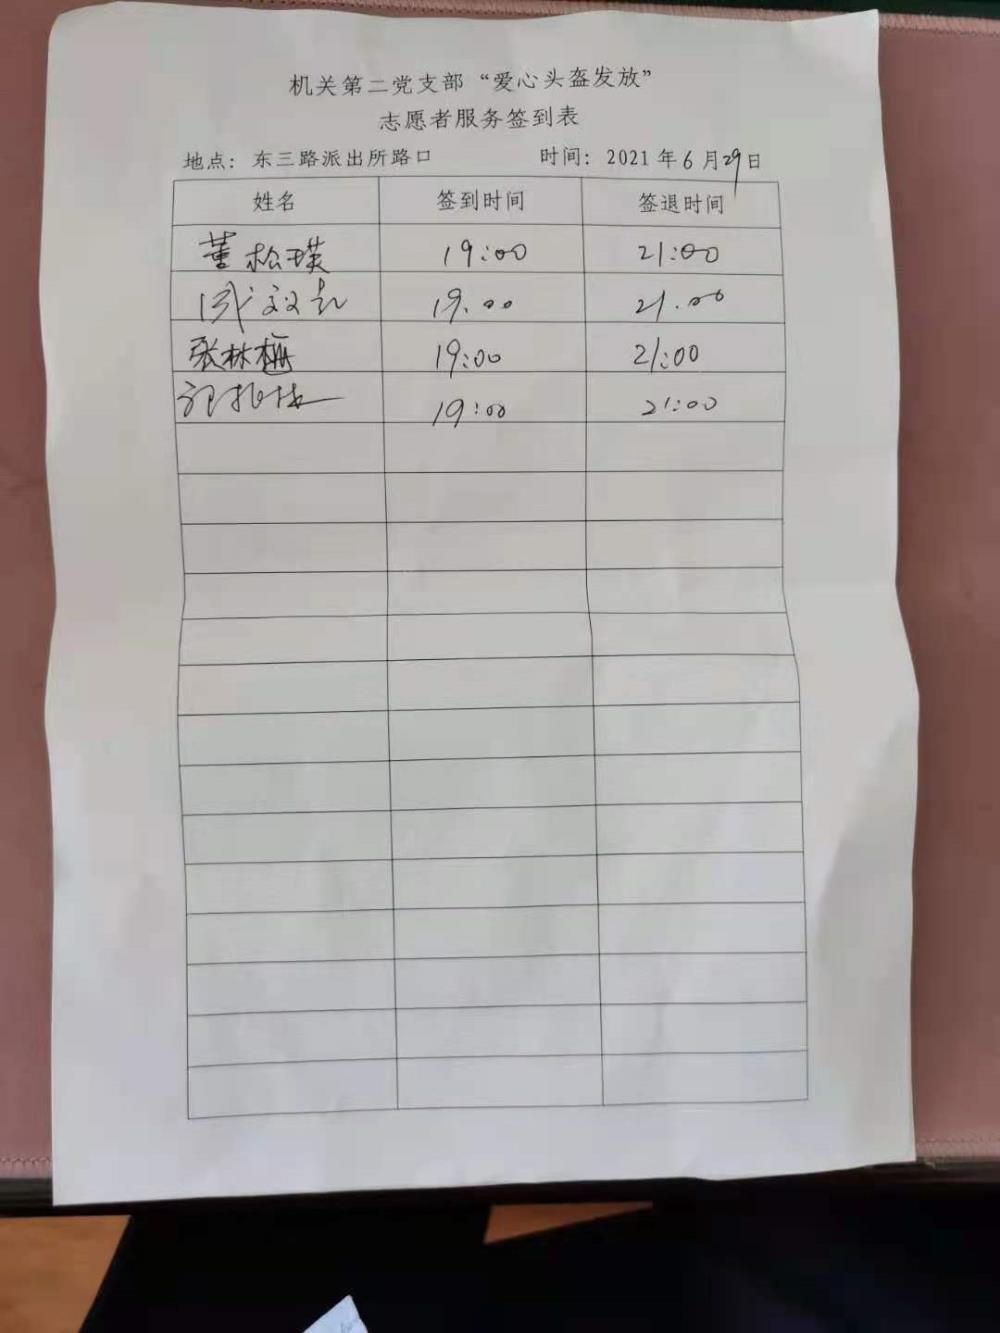 机关第二党支部“爱心头盔发放”
志愿者服务签到表
地点：东三路派出所路口 时间：2021年6月29日
姓名 签到时间 签退时间
董松瑛 19:00 21:00
19.00 21.00
张林梅 19:00 21:00
19:00 21:00